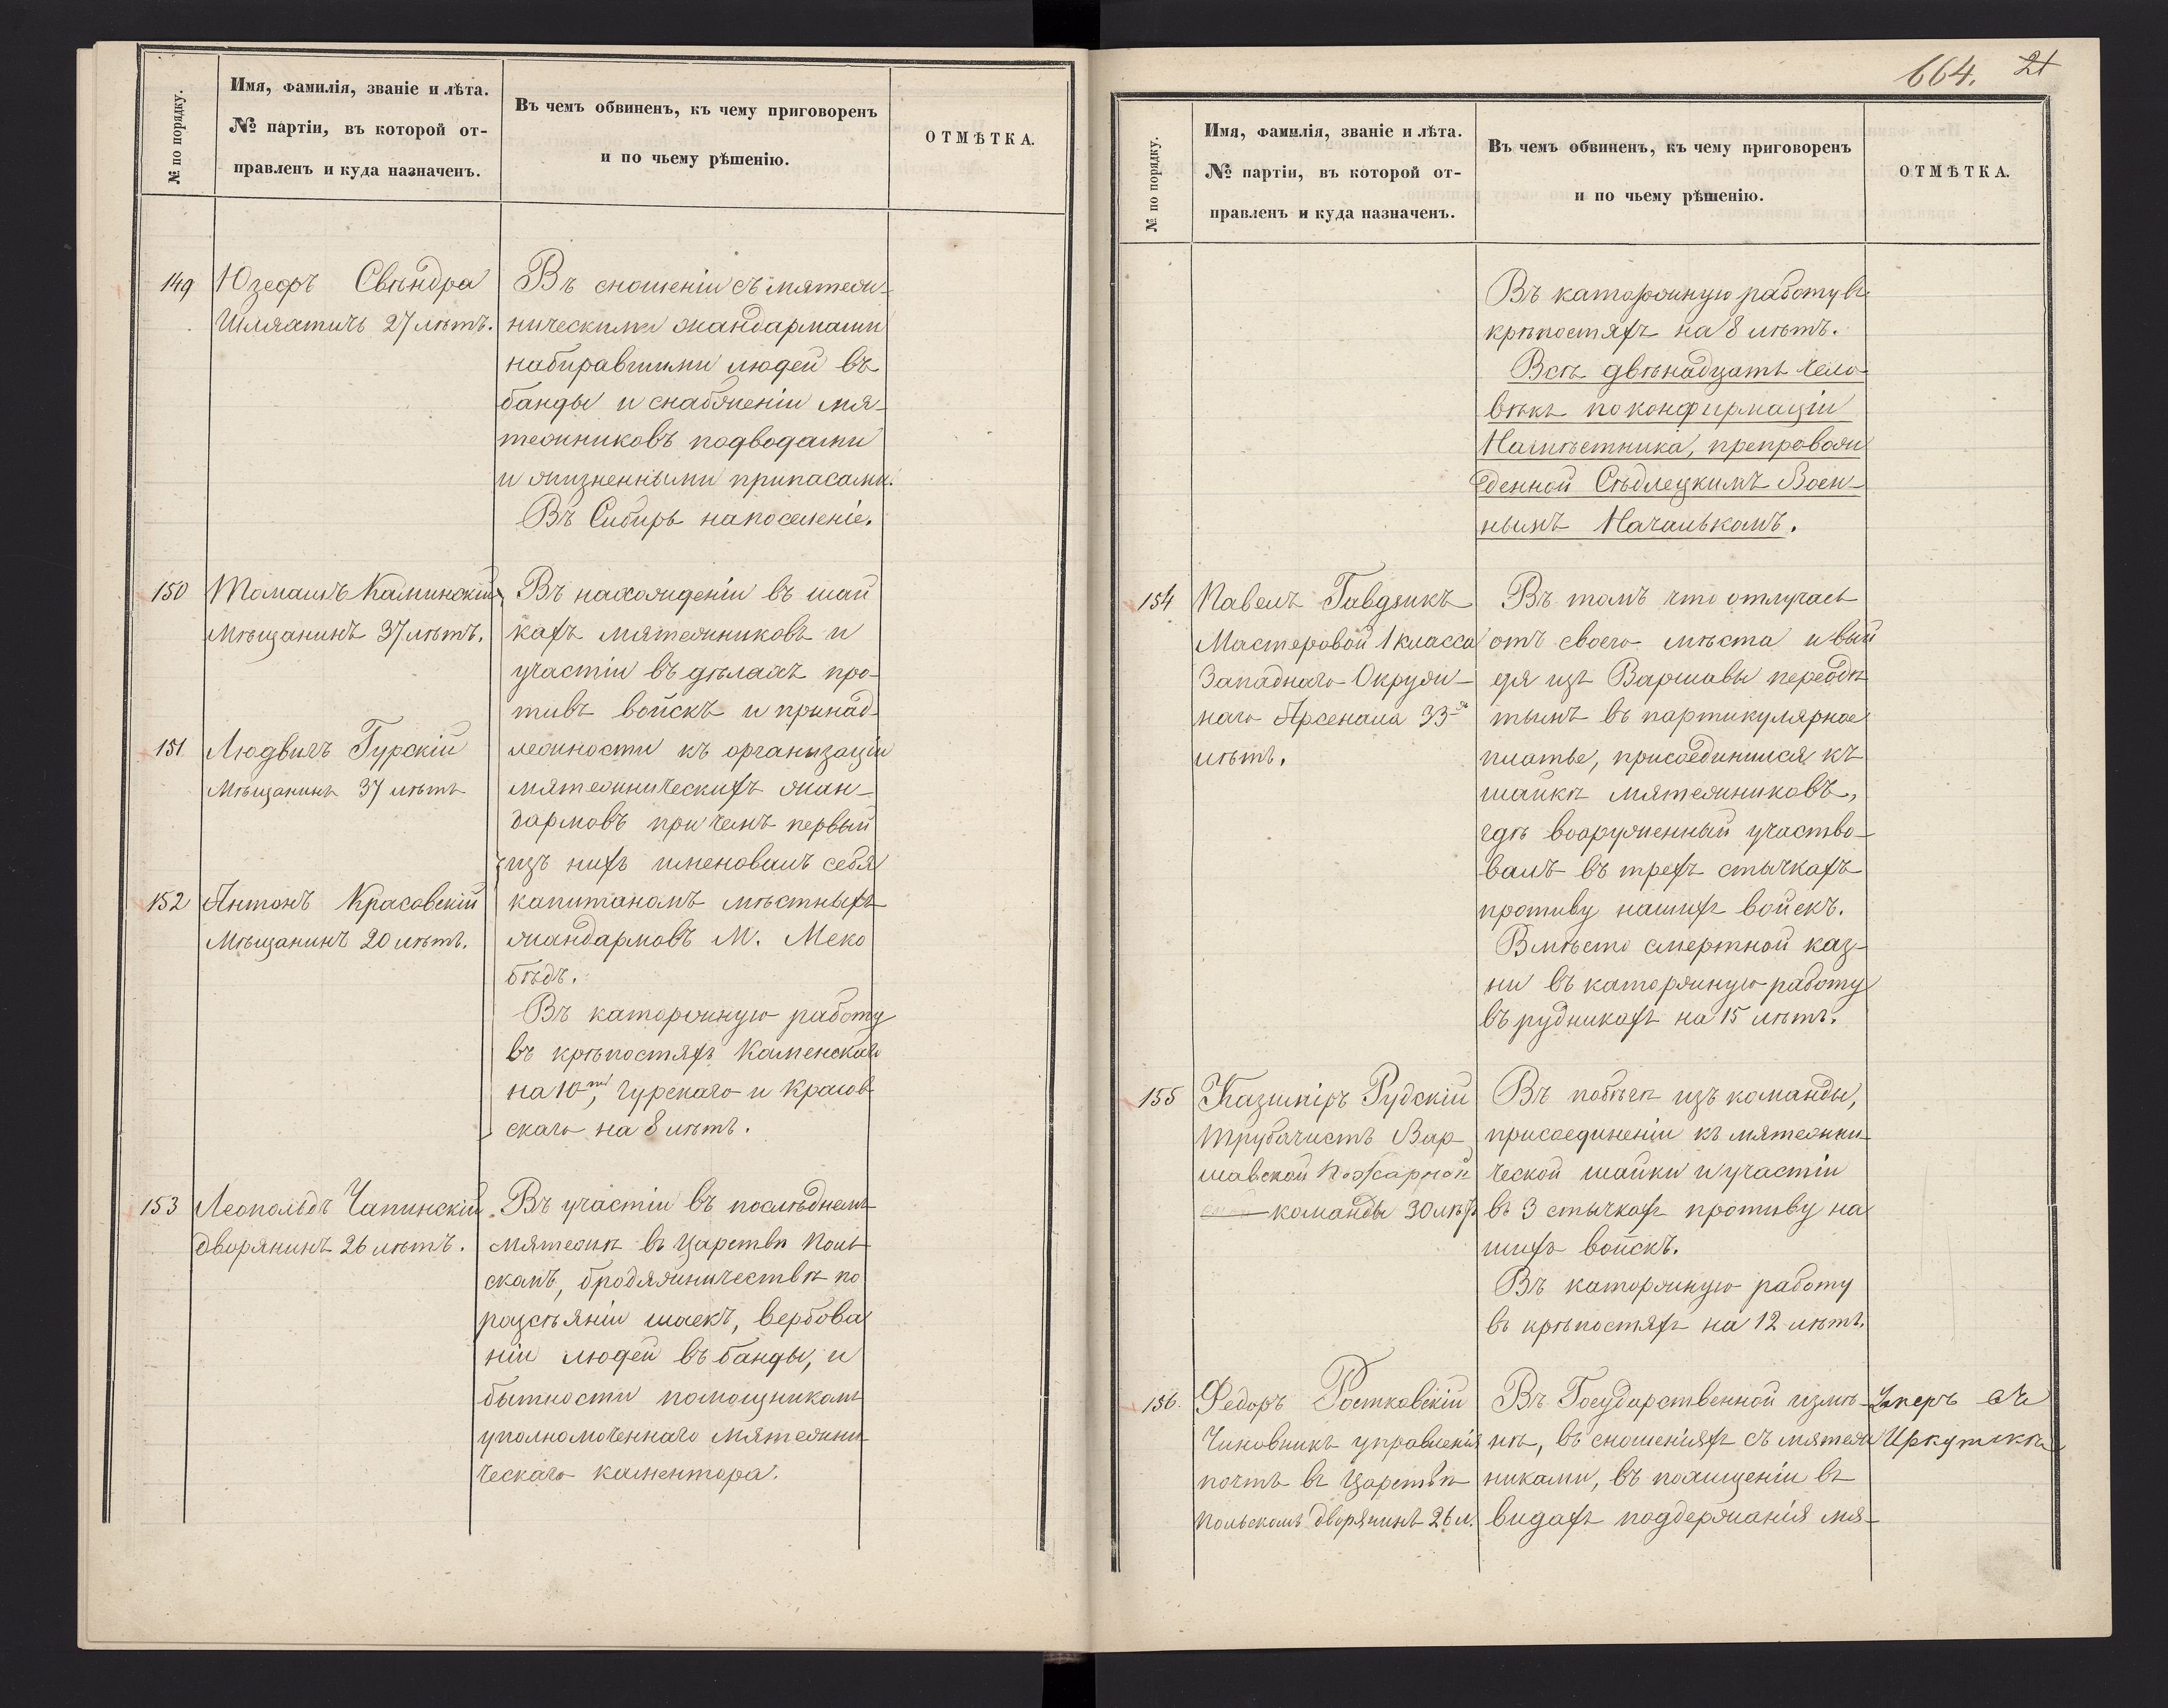 № по порядку.
Имя, фамилія, званіе и лѣта.
№ партіи, въ которой от-
правленъ и куда назначенъ.
Въ чемъ обвиненъ, къ чему приговоренъ
и по чьему рѣшенію.
ОТМѢТКА.
149
Юзефъ Свѣндра
Шляхтичъ 27 лѣтъ.
Въ сношеніи съ мятеж-
ническими жандармами
набиравшими людей въ
банды и снабженіи мя-
тежниковъ подводами
и жизненными припасами.
Въ Сибирь на поселеніе.
150
Томашъ Каминскій
Мѣщанинъ 37 лѣтъ.
151
Людвигъ Гурскій
Мѣщанинъ 37 лѣтъ
152
Антонъ Красовскій
Мѣщанинъ 20 лѣтъ.
Въ нахожденіи въ шай
кахъ мятежниковъ и
участіи въ дѣлахъ про-
тивъ войскъ и принад-
лежности къ организаціи
мятежническихъ жан-
дармовъ при чемъ первый
изъ нихъ именовалъ себя
капитаномъ мѣстныхъ
жандармовъ М. Меко
бѣдъ.
Въ каторжную работу
въ крѣпостяхъ Каменскаго
на 10ть, Гурскаго и Красов-
скаго на 8 лѣтъ.
153
Леопольдъ Чапинскій
дворянинъ 26 лѣтъ.
Въ участіи въ послѣднемъ
мятежѣ въ Царствѣ Поль-
скомъ, бродяжничествѣ по
разсѣяніи шаекъ, вербова
ніи людей въ банды, и
бытности помощникомъ
уполномоченнаго мятежни-
ческаго
664. 21
№ по порядку.
Имя, фамилія, званіе и лѣта.
№ партіи, въ которой от-
правленъ и куда назначенъ.
Въ чемъ обвиненъ, къ чему приговоренъ
и по чьему рѣшенію.
ОТМѢТКА.
Въ каторжную работу въ
крѣпостяхъ на 8 лѣтъ.
Всѣ двѣнадцать чело-
вѣкъ по конфирмаціи
Намѣстника, препровож
денной Сѣдлецкимъ Воен-
нымъ Началькомъ.
154
Павелъ Гавдзикъ
Мастеровой 1 класса
Западнаго Окруж-
наго Арсенала 33-хъ
лѣтъ.
Въ томъ что отлучась
отъ своего мѣста и вый
дя изъ Варшавы переодѣ
тымъ въ партикулярное
платье, присоединился къ
шайкѣ мятежниковъ,
гдѣ вооруженный участво-
валъ въ трехъ стычкахъ
противу нашихъ войскъ.
Вмѣсто смертной каз-
ни въ каторжную работу
въ рудникахъ на 15 лѣтъ.
155
Казиміръ Рудскій
Трубочистъ Вар
шавской Пожарной
команды 30 лѣтъ
Въ побѣгѣ изъ команды,
присоединеніи къ мятежни-
ческой шайки и участіи
въ 3 стычкахъ противу на
шихъ войскъ.
Въ каторжную работу
въ крѣпостяхъ на 12 лѣтъ.
156.
Федоръ Ростковскій
Чиновникъ управленія
почтъ въ Царствѣ
Польскомъ дворянинъ 26 л.
Въ Государственной измѣ-
нѣ, въ сношеніяхъ съ мятеж
никами, въ похищеніи въ
видахъ поддержанія мя-
Умеръ въ
Иркутскѣ